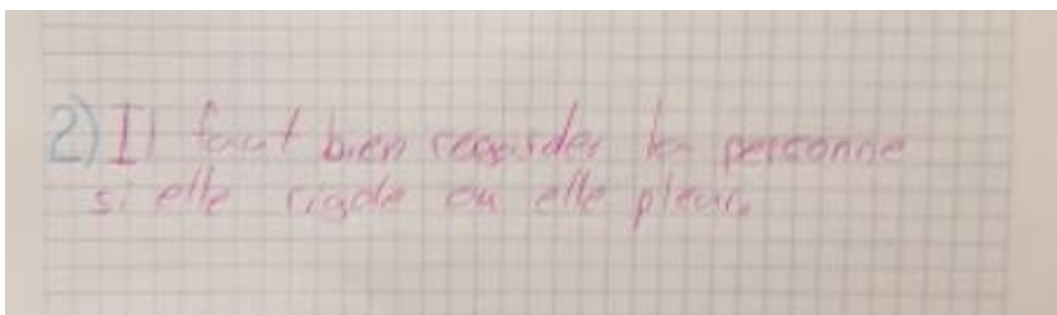 2) Il faut bien regarder la personne
si elle rigole ou elle pleur